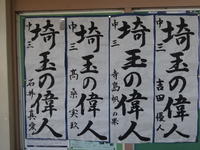 埼玉の偉人
中三 吉田優人
埼玉の偉人
中三 寺島
埼玉の偉人
中三 高桑実
埼玉の偉人
中三 石井